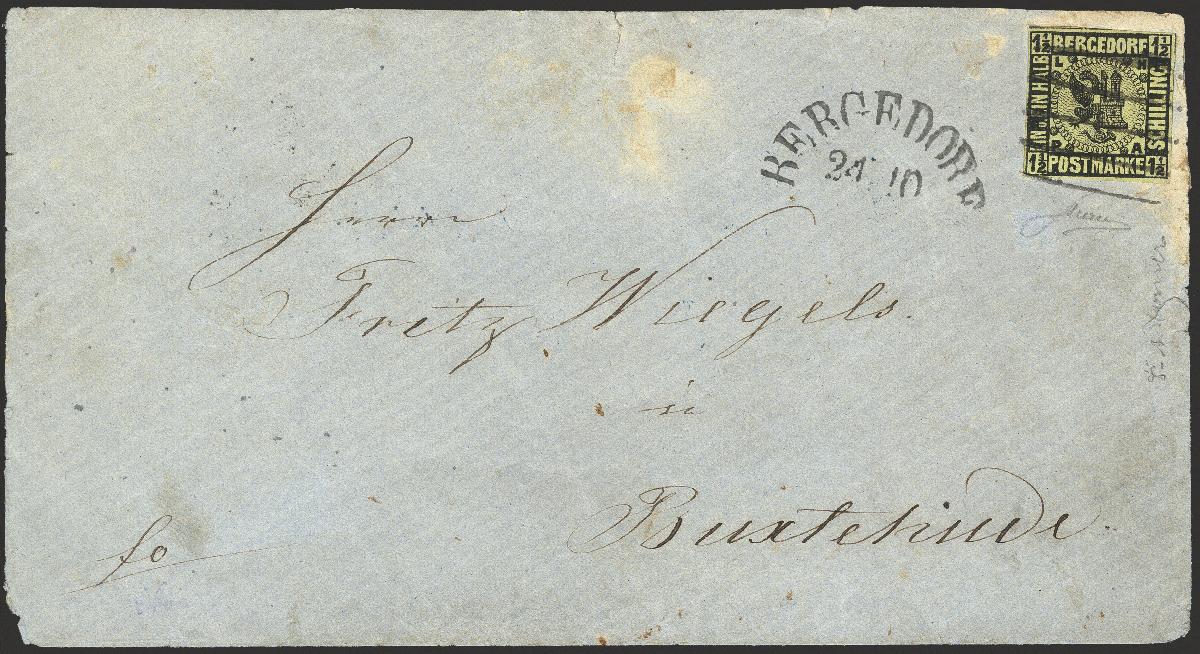 1½ BERGEDORF 1½
L H
EIN U. EIN HALB
SCHILLING
P A
1½ POSTMARKE 1½
BERGEDORF
24 10
Herrn
Fritz Wiegels.
in
Buxtehude
fo